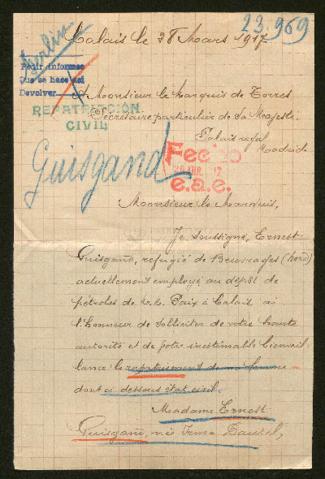 23,969
Berlin
Calais le 28 Mars 1917
Pedir informes
Que se hace así
Devolver
A Monsieur le Marquis de Torres
REPATRIACIÓN
CIVIL
Secrétaire particulière de Sa Majesté
Palais royal
Madrid
Guisgand
Fecho
e.a.e.
Monsieur le Marquis,
Je soussigné, Ernest
Guisgand, réfugié de Beuvrages (Nord)
actuellement employé au dépôt de
pétroles de la Paix à Calais ai
l'honneur de solliciter de votre haute
autorité et de votre inestimable bienveil
lance le rapatriement de ma femme
dont ci dessous état civil.
Madame Ernest
Guisgand, née Irma